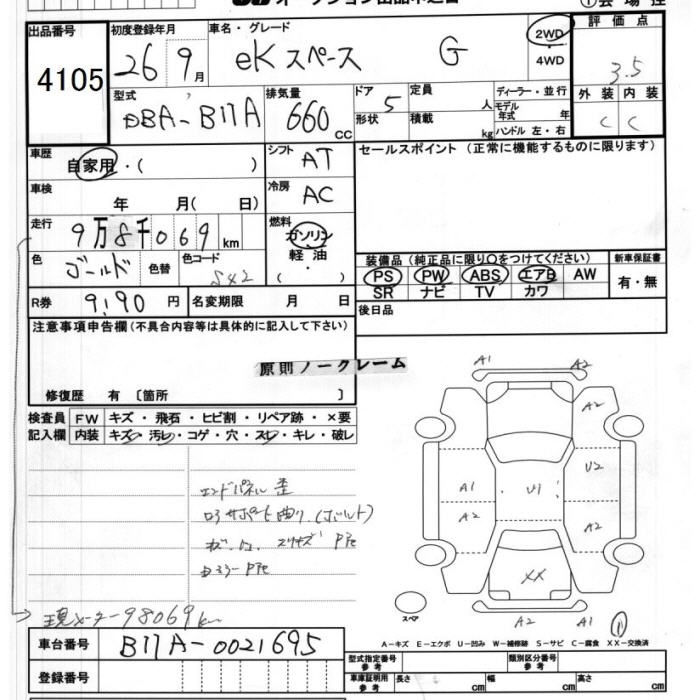 オークション出品申込書
①会場控
出品番号
4105
初度登録年月
26 9月
車名・グレード
eKスペース G
2WD
・
4WD
評価点
3.5
型式
DBA-B11A
排気量
660 cc
ドア 5
形状
定員 人
積載 kg
ディーラー・並行
モデル年式 年
ハンドル 左・右
外装 内装
C C
車歴
自家用・( )
シフト AT
セールスポイント (正常に機能するものに限ります)
車検
年 月( 日)
冷房 AC
走行
9万8千069km
燃料
ガソリン
軽油
・
( )
色 ゴールド 色替 色コード S42
装備品 (純正品に限り○をつけてください)
新車保証書
PS PW ABS エアB AW
SR ナビ TV カワ
有・無
R券 9,190 円
名変期限 月 日
後日品
注意事項申告欄(不具合内容等は具体的に記入して下さい)
原則ノークレーム
修復歴 有 〔箇所 〕
検査員記入欄
FW キズ・飛石・ヒビ割・リペア跡・×要
内装 キズ・汚レ・コゲ・穴・スレ・キレ・破レ
エンドパネル歪
ロアサポート曲り(ボルト)
現メーター98069km
A1 A2
A2
U2
A1 U1
A2 A2
XX
スペア
A2 A1 ①
A-キズ E-エクボ U-凹み W-補修跡 S-サビ C-腐食 XX-交換済
車台番号
B11A-0021695
登録番号
型式指定番号 参考
類別区分番号 参考
車庫証明用 参考
長さ cm 幅 cm 高さ cm